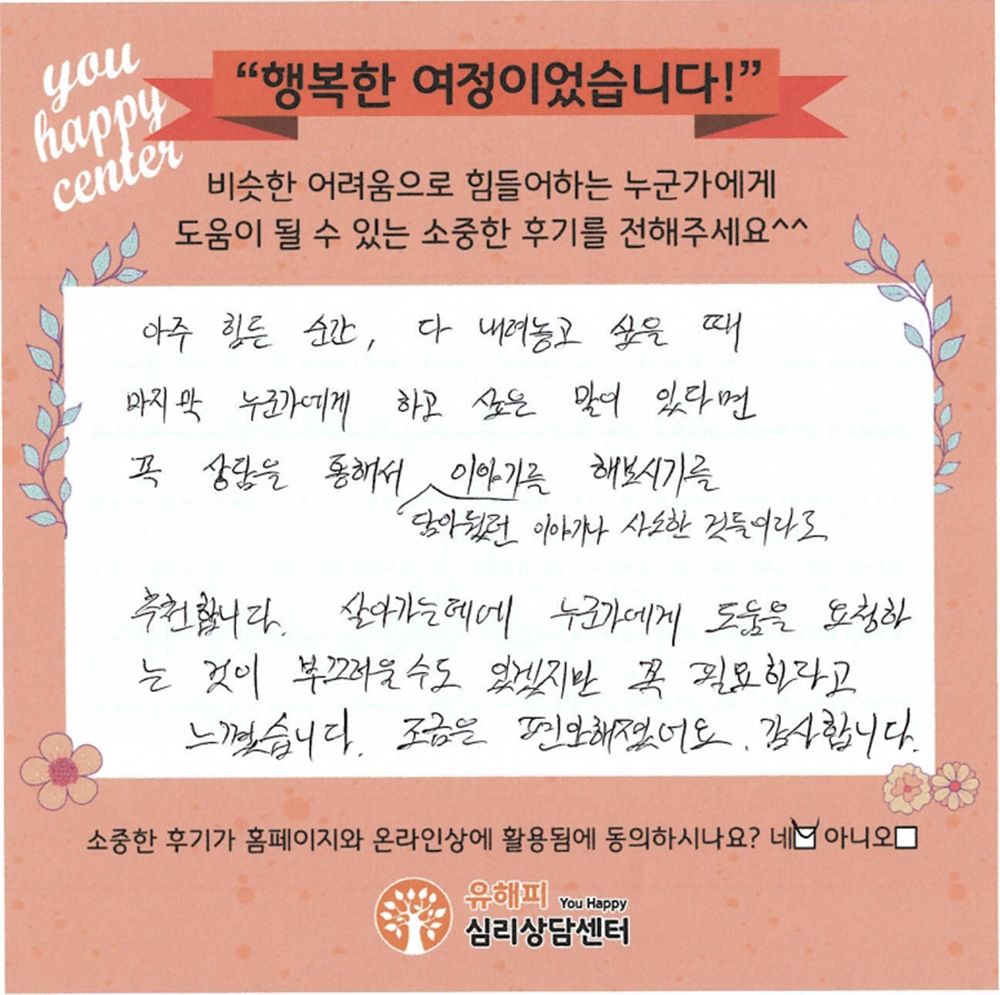 you
happy
center
“행복한 여정이었습니다!”
비슷한 어려움으로 힘들어하는 누군가에게
도움이 될 수 있는 소중한 후기를 전해주세요^^
아주 힘든 순간, 다 내려놓고 싶을 때
마지막 누군가에게 하고 싶은 말이 있다면
꼭 상담을 통해서 이야기를 해보시기를
담아뒀던 이야기나 사소한 것들이라도
추천합니다. 살아가는데에 누군가에게 도움을 요청하
는 것이 부끄러울수도 있겠지만 꼭 필요하다고
느꼈습니다. 조금은 편안해졌어요. 감사합니다.
소중한 후기가 홈페이지와 온라인상에 활용됨에 동의하시나요? 네 아니오
유해피 You Happy
심리상담센터